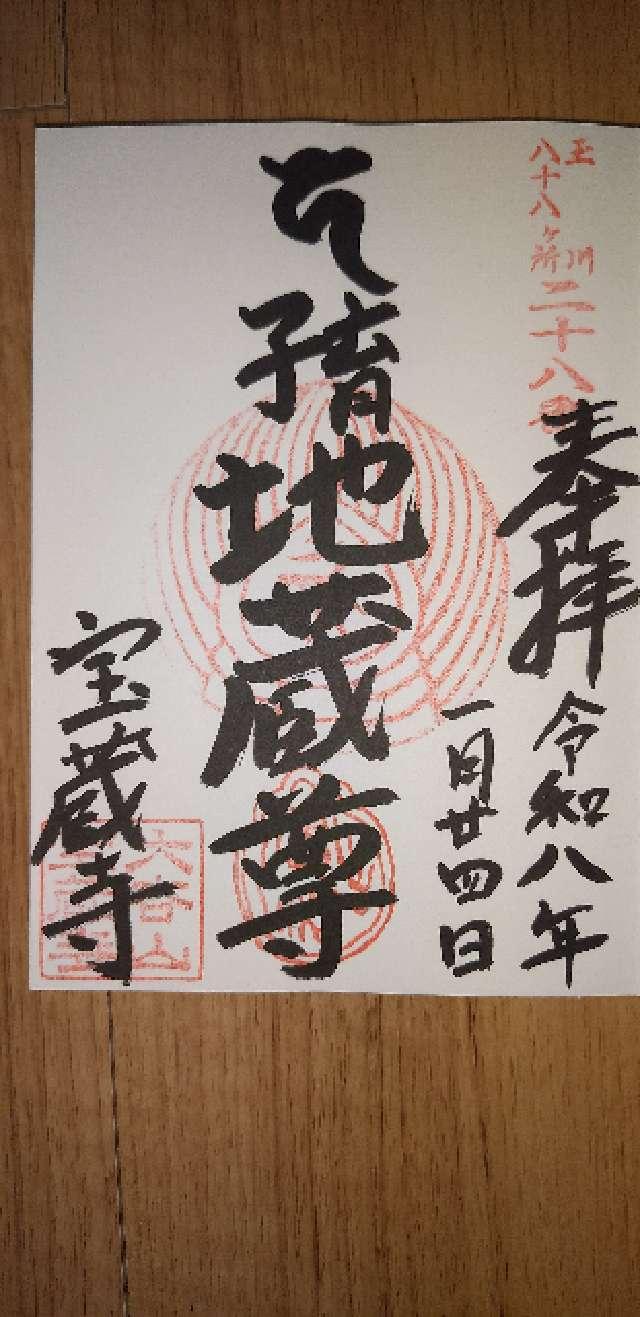 玉川
八十八ヶ所
二十八
奉拝
令和八年
一月廿四日
子育地蔵尊
宝蔵寺
大谷山